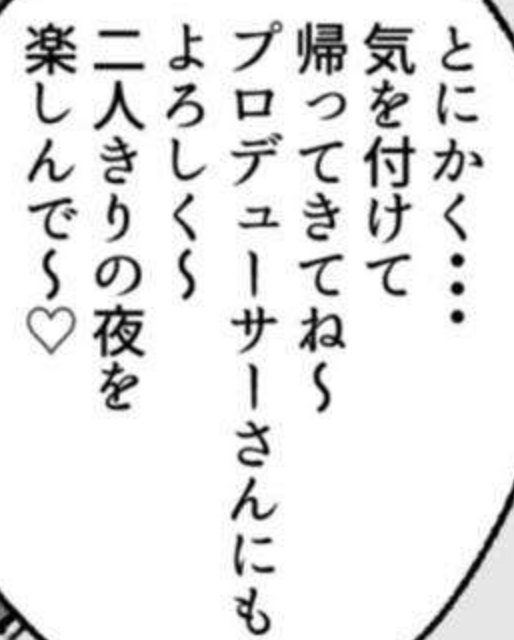 とにかく…
気を付けて
帰ってきてね～
プロデューサーさんにも
よろしく～
二人きりの夜を
楽しんで～♡